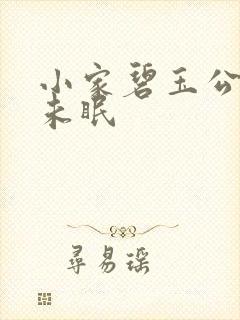 小家碧玉公
未眠
尋易瑶